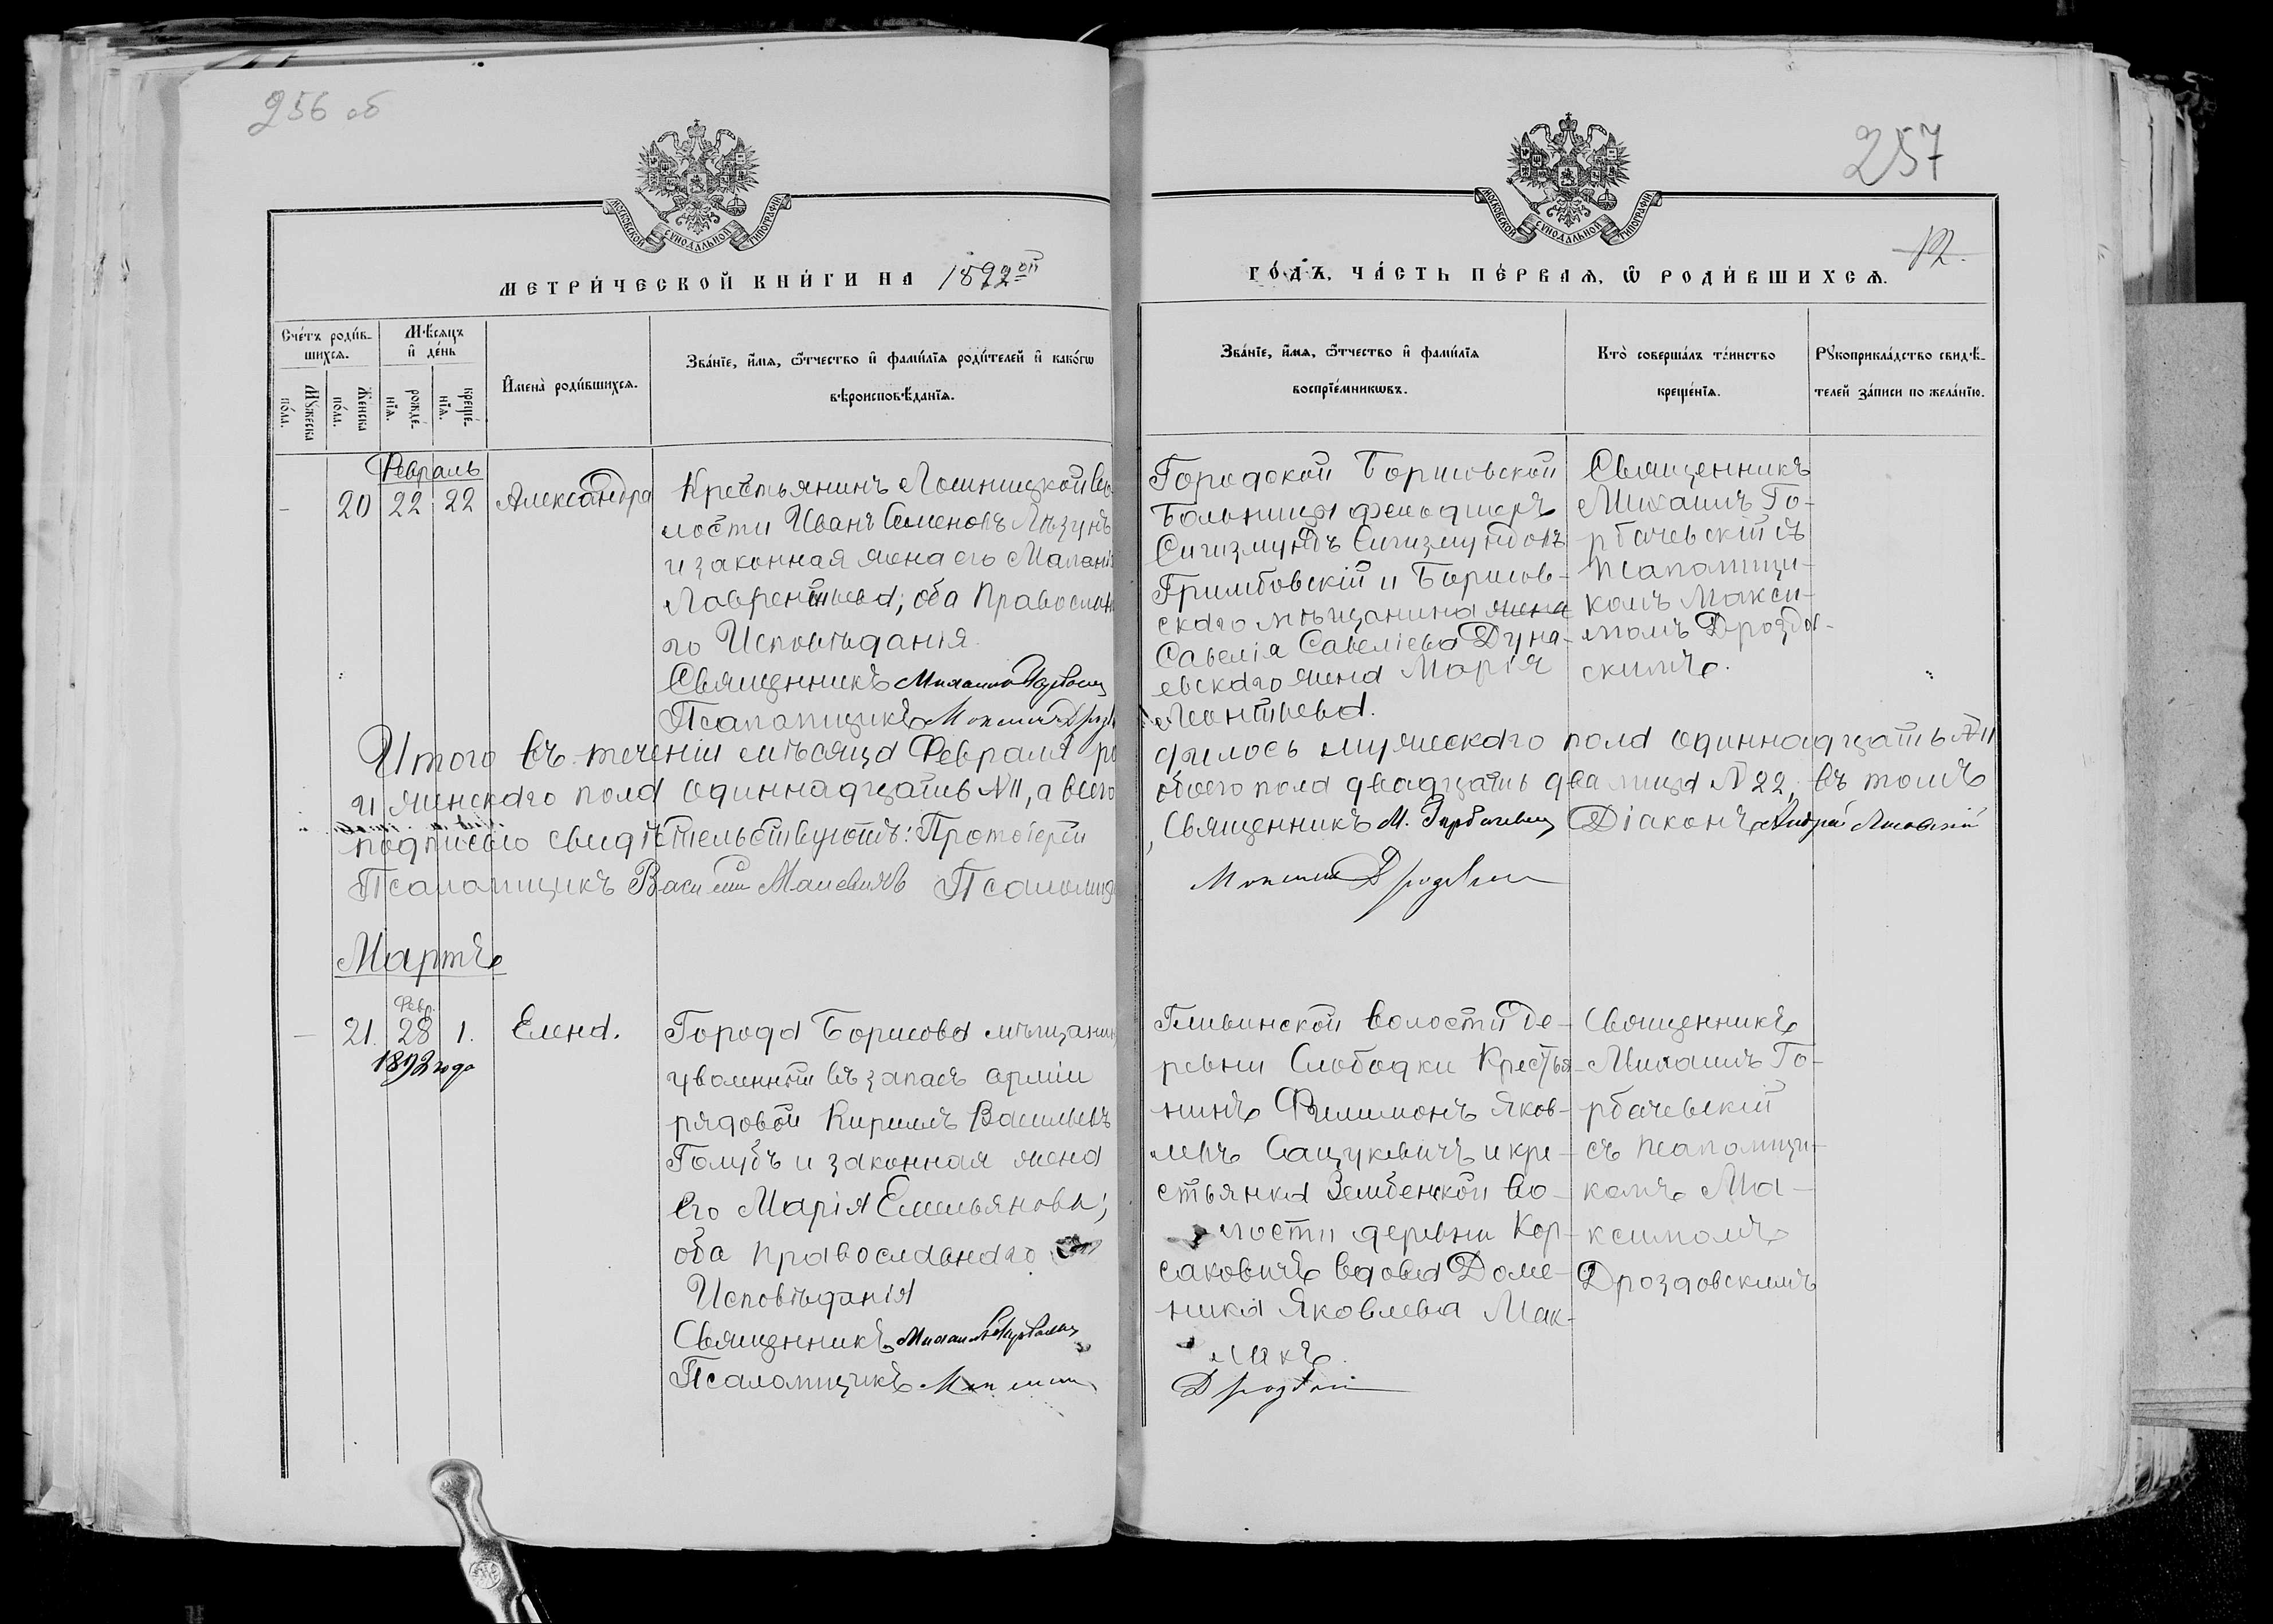 256 об
257
12.
МОСКОВСКОЙ СѴНОДАЛЬНОЙ ТИПОГРАФІИ
МОСКОВСКОЙ СѴНОДАЛЬНОЙ ТИПОГРАФІИ
МЕТРИ́ЧЕСКОЙ КНИ́ГИ НА 1892ой
ГО́ДЪ, ЧА́СТЬ ПЕ́РВАѦ, Ѿ РОДИ́ВШИХСѦ.
Сче́тъ роди́в-
шихсѧ.
Мꙋжеска по́ла.
Же́нска по́ла.
Мѣ́сѧцъ
и҆ де́нь
рожде́-
нїѧ.
креще́-
нїѧ.
И҆мена̀ роди́вшихсѧ.
Зва́нїе, и҆́мѧ, ѻ҆́тчество и҆ фами́лїѧ роди́телей и҆ како́гѡ
вѣроисповѣ́данїѧ.
Зва́нїе, и҆́мѧ, ѻ҆́тчество и҆ фами́лїѧ
воспрїе́мникѡвъ.
Кто̀ соверша́лъ та́инство
креще́нїѧ.
Рꙋкоприкла́дство свидѣ́-
телей за́писи по жела́нїю.
Февраль
- 20 22 22 Александра
Крестьянинъ Лошницкой во-
лости Иванъ Семеновъ Лязунъ
и законная жена его Маланія
Лаврентьева; оба Православн
го Исповѣданія.
Священникъ Михаилъ Горбачев
Псаломщикъ Максимъ Дрозд
Городской Борисовской
Больницы фельдшеръ
Сигизмундъ Сигизмундовъ
Гримбовскій и Борисов-
скаго мѣщанина жена
Савелія Савеліева Дуна-
евскаго жена Марія
Леонтьева.
Священникъ
Михаилъ Го-
рбачевскій съ
псаломщи-
комъ Макси-
момъ Дроздов-
скимъ.
Итого въ теченіи мѣсяца Февраля ро
дилось мужескаго пола одиннадцать №11
и женскаго пола одиннадцать №11, а всего
обоего пола двадцать два лица №22, въ томъ
подписью свидѣтельствуютъ: Протоіерей
Священникъ М. Горбачевск Діаконъ Андрей
Псаломщикъ Василій Малевичъ Псаломщ
Максимъ Дроздовск
Мартъ
Февр.
- 21. 28 1. Елена.
1892 года
Города Борисова мѣщанин
уволенный въ запасъ арміи
рядовой Кириллъ Васильевъ
Голубъ и законная жена
его Марія Емельянова;
оба православнаго
Исповѣданія
Священникъ Михаилъ Горбачев
Псаломщикъ Максимъ
Гливинской волости де-
ревни Слободки Кресть-
янинъ Филимонъ Яков-
левъ Сацукевичъ и кре-
стьянка Зембенской во-
лости деревни Кор-
саковичъ вдова Доме-
ника Яковлева Мак-
лякъ.
Дроздовскій
Священникъ
Михаилъ Го-
рбачевскій
съ псаломщи-
комъ Ма-
ксимомъ
Дроздовскимъ